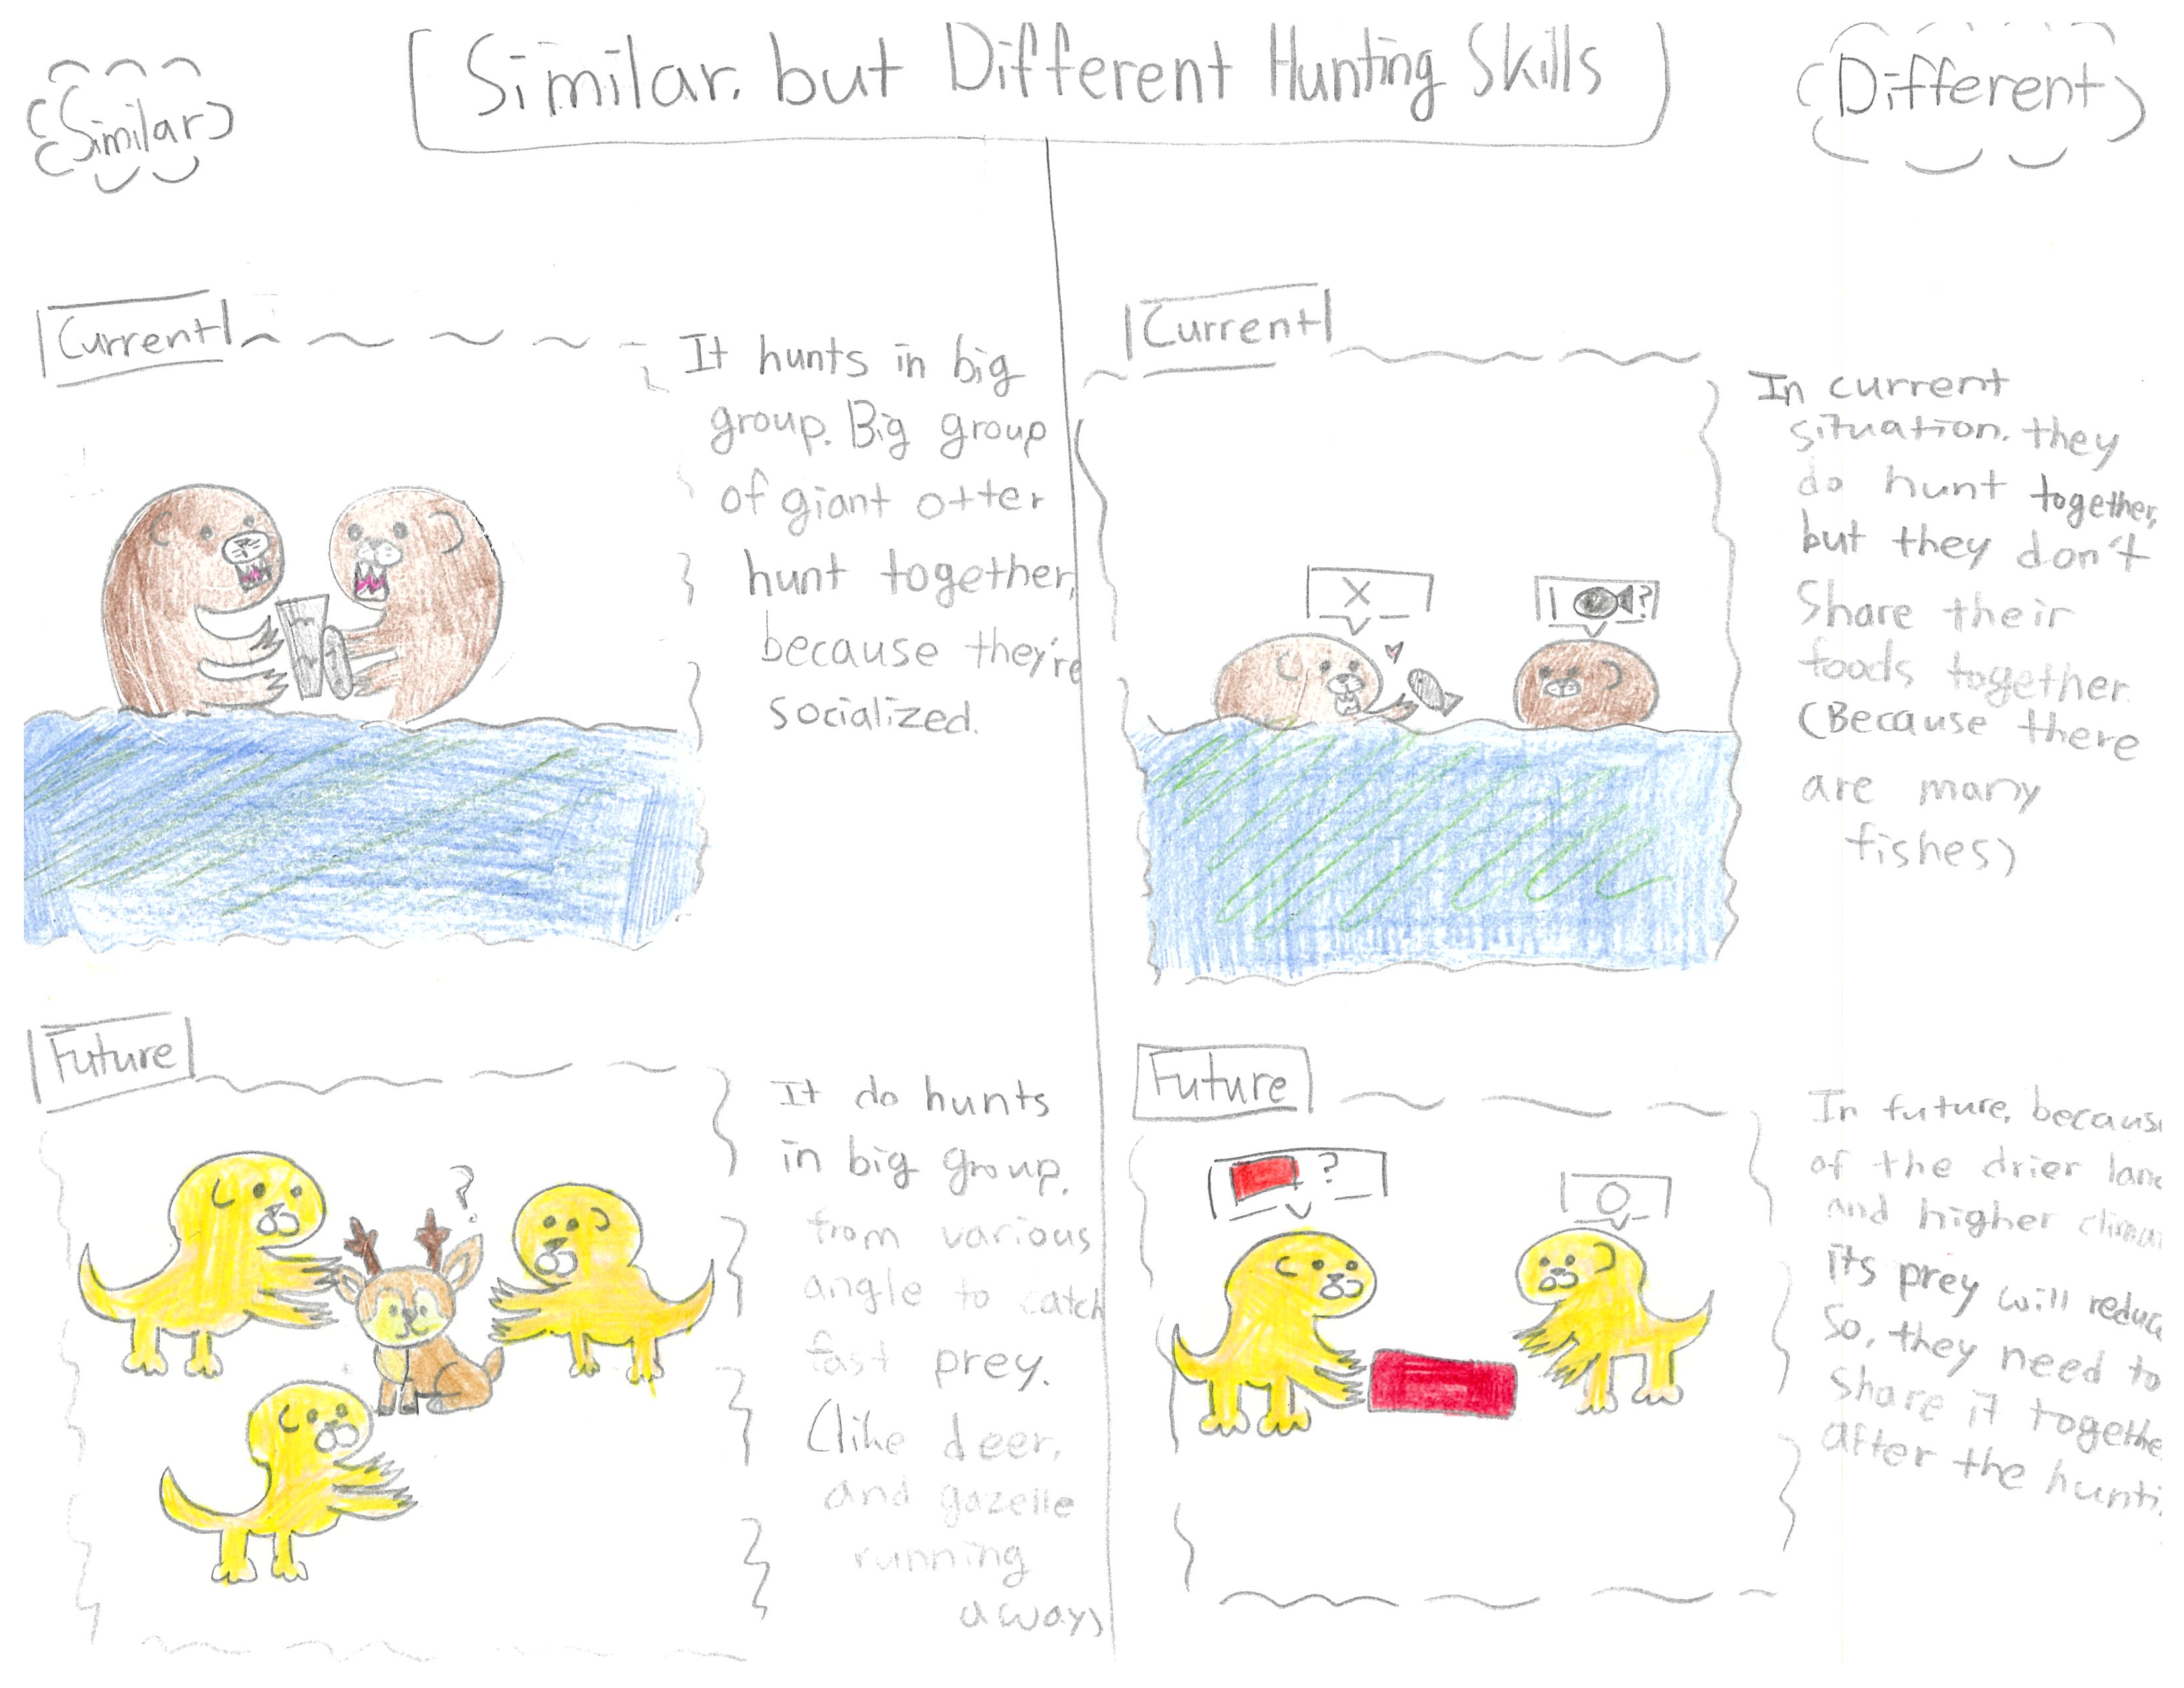 Similar, but Different Hunting Skills
Similar
Different
Current
It hunts in big
group. Big group
of giant otter
hunt together,
because they're
socialized.
Future
It do hunts
in big group.
from various
angle to catch
fast prey.
(like deer,
and gazelle
running
away)
?
Current
In current
situation, they
do hunt together,
but they don't
Share their
foods together.
(Because there
are many
fishes)
X
?
Future
In future, becaus
of the drier lan
and higher clima
its prey will reduc
So, they need to
Share it togethe
after the hunti
?
O